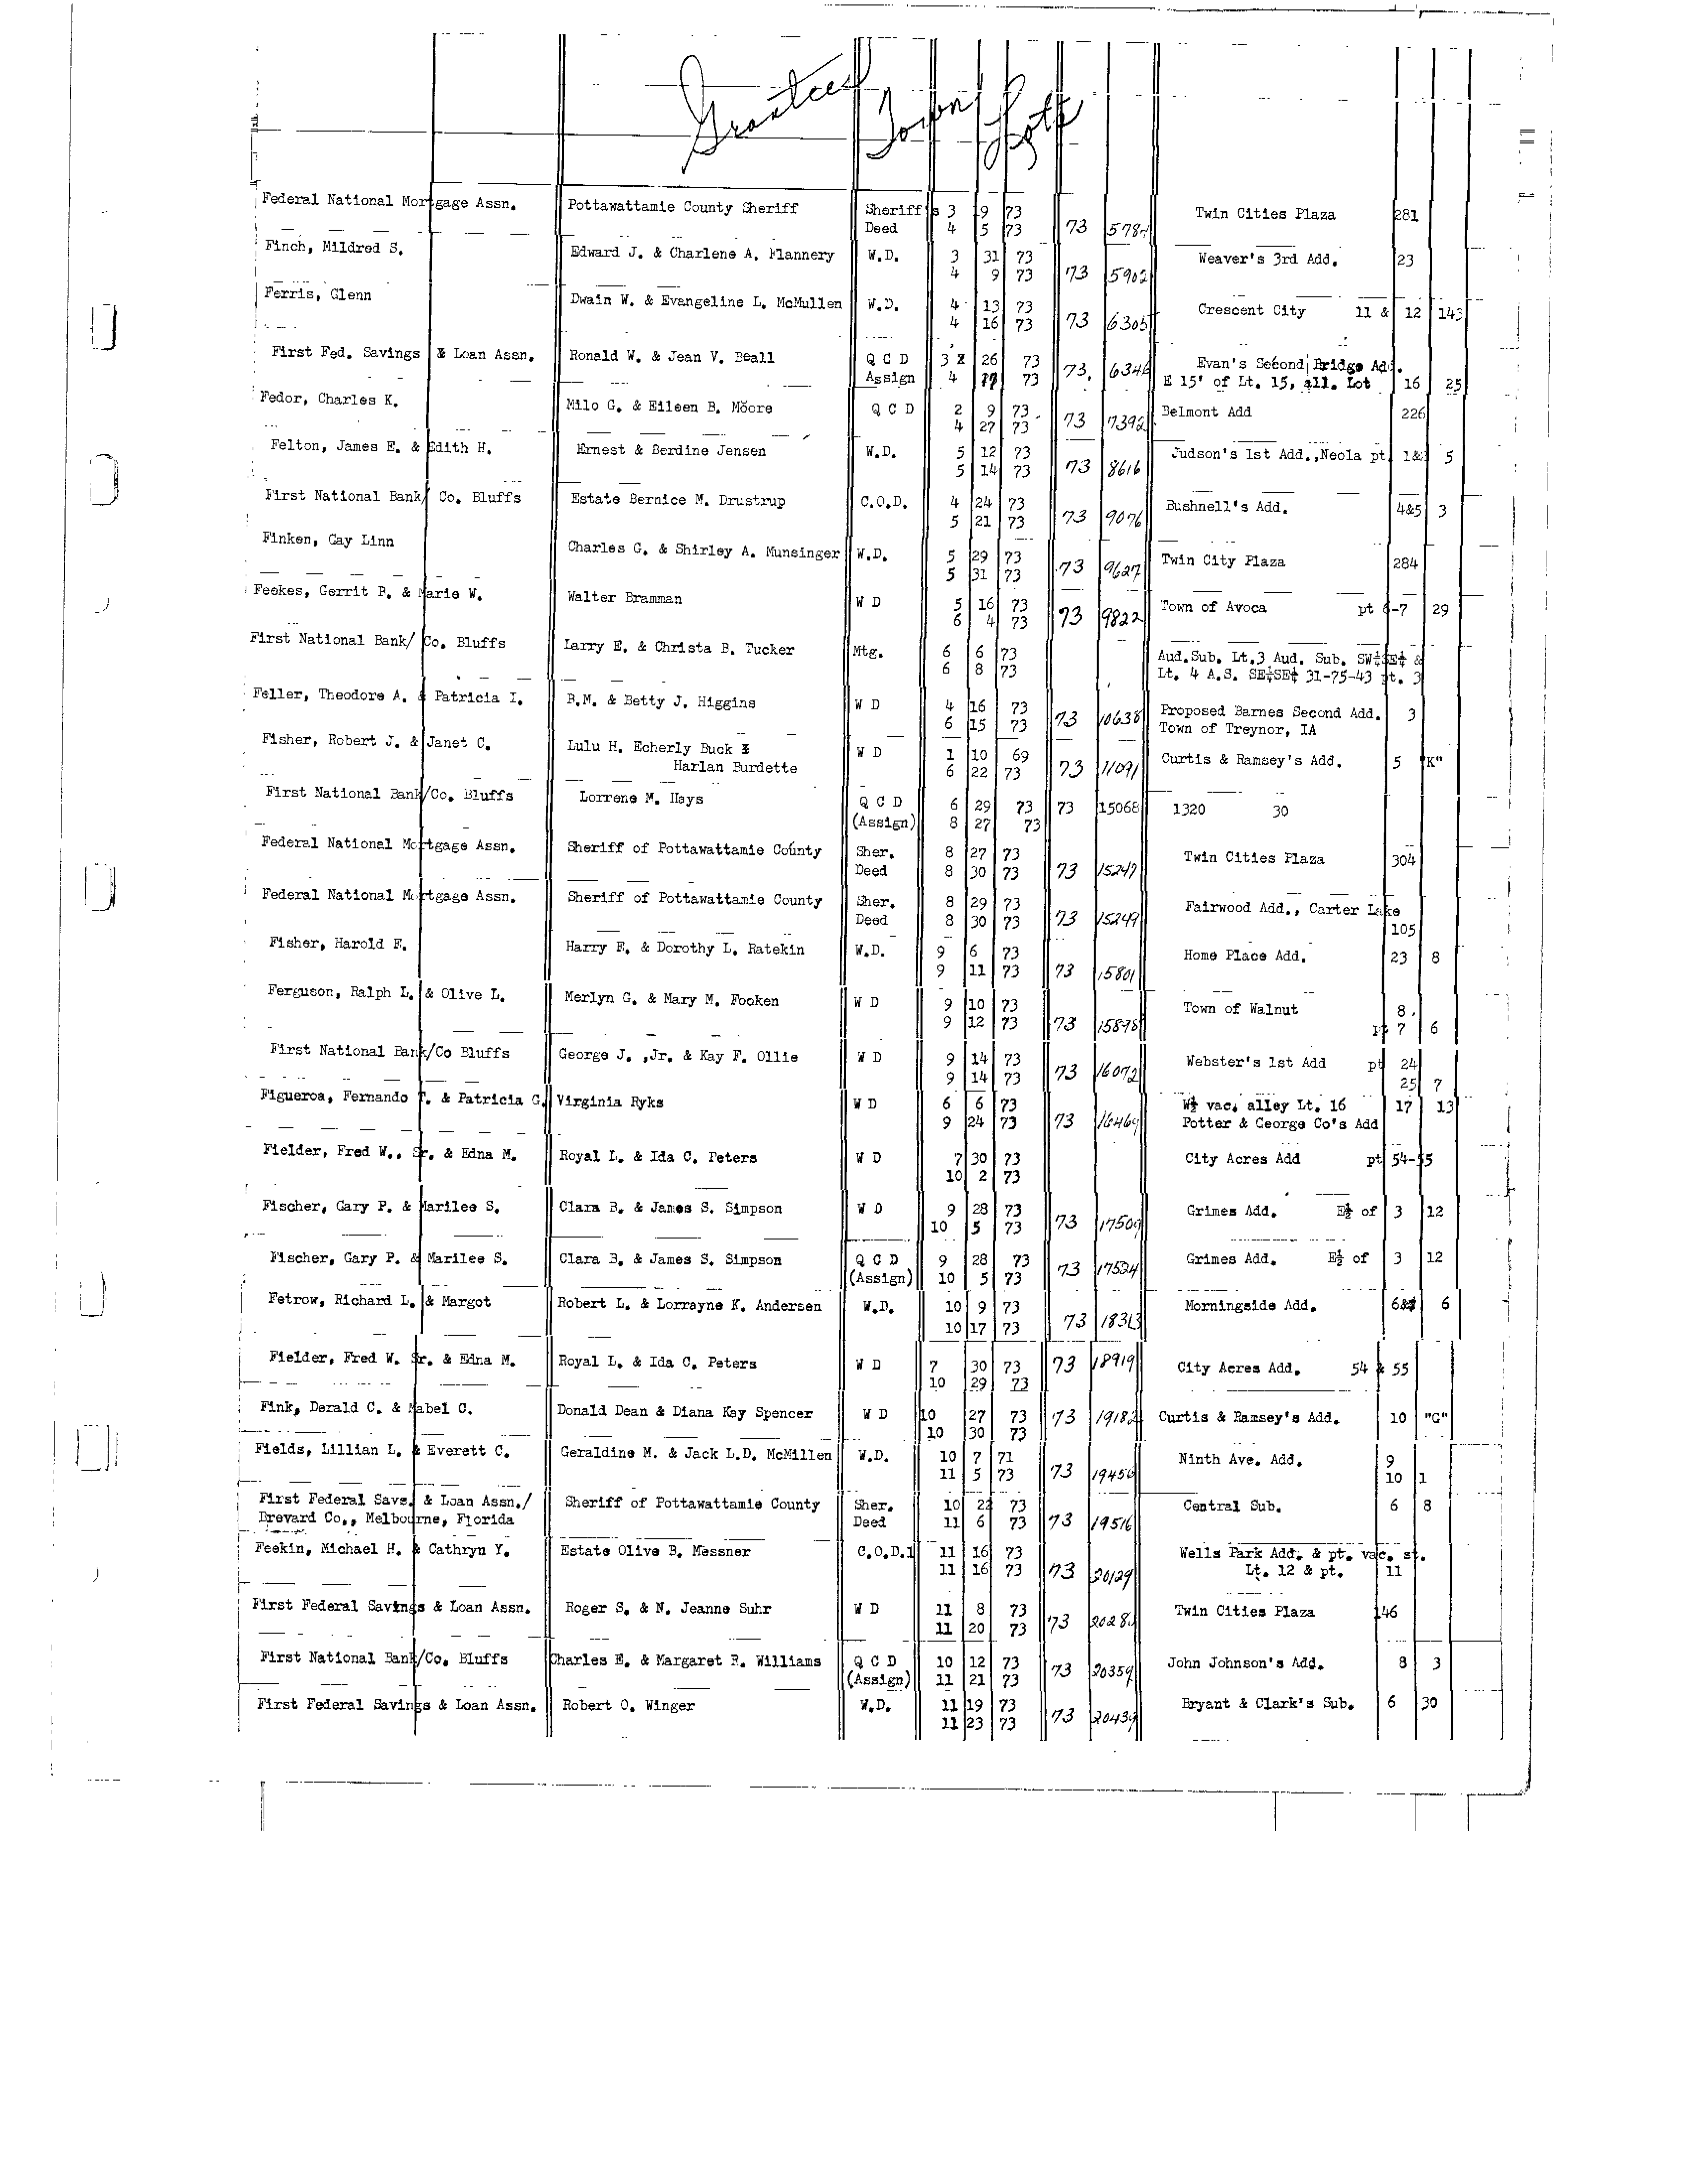 Grantee Town Lots
Federal National Mortgage Assn. Pottawattamie County Sheriff Sheriff's 3 9 73 Twin Cities Plaza 281
Deed 4 5 73 73
Finch, Mildred S. Edward J. & Charlene A. Flannery W.D. 3 31 73 Weaver's 3rd Add. 23
4 9 73 73 5902
Ferris, Glenn Dwain W. & Evangeline L. McMullen W.D. 4 13 73 Crescent City 11 & 12 143
4 16 73 73 6305
First Fed. Savings & Loan Assn. Ronald W. & Jean V. Beall Q C D 3 26 73 Evan's Second Bridge Add.
Assign 4 73 73 6346 E 15' of Lt. 15, all. Lot 16 25
Fedor, Charles K. Milo G. & Eileen B. Moore Q C D 2 9 73 Belmont Add 226
4 27 73 73 7392
Felton, James E. & Edith H. Ernest & Berdine Jensen W.D. 5 12 73 Judson's 1st Add.,Neola pt 5
5 14 73 73 8616
First National Bank/ Co. Bluffs Estate Bernice M. Drustrup C.O.D. 4 24 73 Bushnell's Add. 4&5 3
5 21 73 73 9076
Finken, Gay Linn Charles G. & Shirley A. Munsinger W.D. 5 29 73 Twin City Plaza 284
5 31 73 73 9627
Feekes, Gerrit P. & Marie W. Walter Bramman W D 5 16 73 Town of Avoca pt 6-7 29
6 4 73 73 9822
First National Bank/ Co. Bluffs Larry E. & Christa B. Tucker Mtg. 6 6 73 Aud.Sub. Lt.3 Aud. Sub. SW¼SE¼ &
6 8 73 Lt. 4 A.S. SE¼SE¼ 31-75-43 pt. 3
Feller, Theodore A. & Patricia I. R.M. & Betty J. Higgins W D 4 16 73 Proposed Barnes Second Add. 3
6 15 73 73 10638 Town of Treynor, IA
Fisher, Robert J. & Janet C. Lulu H. Echerly Buck & W D 1 10 69 Curtis & Ramsey's Add. 5 "K"
Harlan Burdette 6 22 73 73 11091
First National Bank/Co. Bluffs Lorrene M. Hays Q C D 6 29 73 73 15068 1320 30
(Assign) 8 27 73
Federal National Mortgage Assn. Sheriff of Pottawattamie County Sher. 8 27 73 Twin Cities Plaza 304
Deed 8 30 73 73 15247
Federal National Mortgage Assn. Sheriff of Pottawattamie County Sher. 8 29 73 Fairwood Add., Carter Lake
Deed 8 30 73 73 15249 105
Fisher, Harold F. Harry F. & Dorothy L. Ratekin W.D. 9 6 73 Home Place Add. 23 8
9 11 73 73 15801
Ferguson, Ralph L. & Olive L. Merlyn G. & Mary M. Fooken W D 9 10 73 Town of Walnut 8.
9 12 73 73 15878 pt 7 6
First National Bank/Co Bluffs George J. ,Jr. & Kay F. Ollie W D 9 14 73 Webster's 1st Add pt 24
9 14 73 73 16072 25 7
Figueroa, Fernando T. & Patricia G. Virginia Ryks W D 6 6 73 W½ vac. alley Lt. 16 17 13
9 24 73 73 16469 Potter & George Co's Add
Fielder, Fred W., Sr. & Edna M. Royal L. & Ida C. Peters W D 7 30 73 City Acres Add pt 54-55
10 2 73
Fischer, Gary P. & Marilee S. Clara B. & James S. Simpson W D 9 28 73 Grimes Add. E½ of 3 12
10 5 73 73 17509
Fischer, Gary P. & Marilee S. Clara B. & James S. Simpson Q C D 9 28 73 Grimes Add. E½ of 3 12
(Assign) 10 5 73 73 17524
Fetrow, Richard L. & Margot Robert L. & Lorrayne K. Andersen W.D. 10 9 73 Morningside Add. 6&7 6
10 17 73 73 18313
Fielder, Fred W. Sr. & Edna M. Royal L. & Ida C. Peters W D 7 30 73 73 18919 City Acres Add. 54 & 55
10 29 73
Fink, Derald C. & Mabel C. Donald Dean & Diana Kay Spencer W D 10 27 73 73 19182 Curtis & Ramsey's Add. 10 "G"
10 30 73
Fields, Lillian L. & Everett C. Geraldine M. & Jack L.D. McMillen W.D. 10 7 71 Ninth Ave. Add. 9
11 5 73 73 19450 10 1
First Federal Savs. & Loan Assn./ Sheriff of Pottawattamie County Sher. 10 73 Central Sub. 6 8
Brevard Co., Melbourne, Florida Deed 11 6 73 73 19516
Feekin, Michael H. & Cathryn Y. Estate Olive B. Messner C.O.D. 11 16 73 Wells Park Add. & pt. vac. st.
11 16 73 73 20129 Lt. 12 & pt. 11
First Federal Savings & Loan Assn. Roger S. & N. Jeanne Suhr W D 11 8 73 Twin Cities Plaza 146
11 20 73 73
First National Bank/Co. Bluffs Charles E. & Margaret R. Williams Q C D 10 12 73 John Johnson's Add. 8 3
(Assign) 11 21 73 73 20359
First Federal Savings & Loan Assn. Robert O. Winger W.D. 11 19 73 Bryant & Clark's Sub. 6 30
11 23 73 73 20439